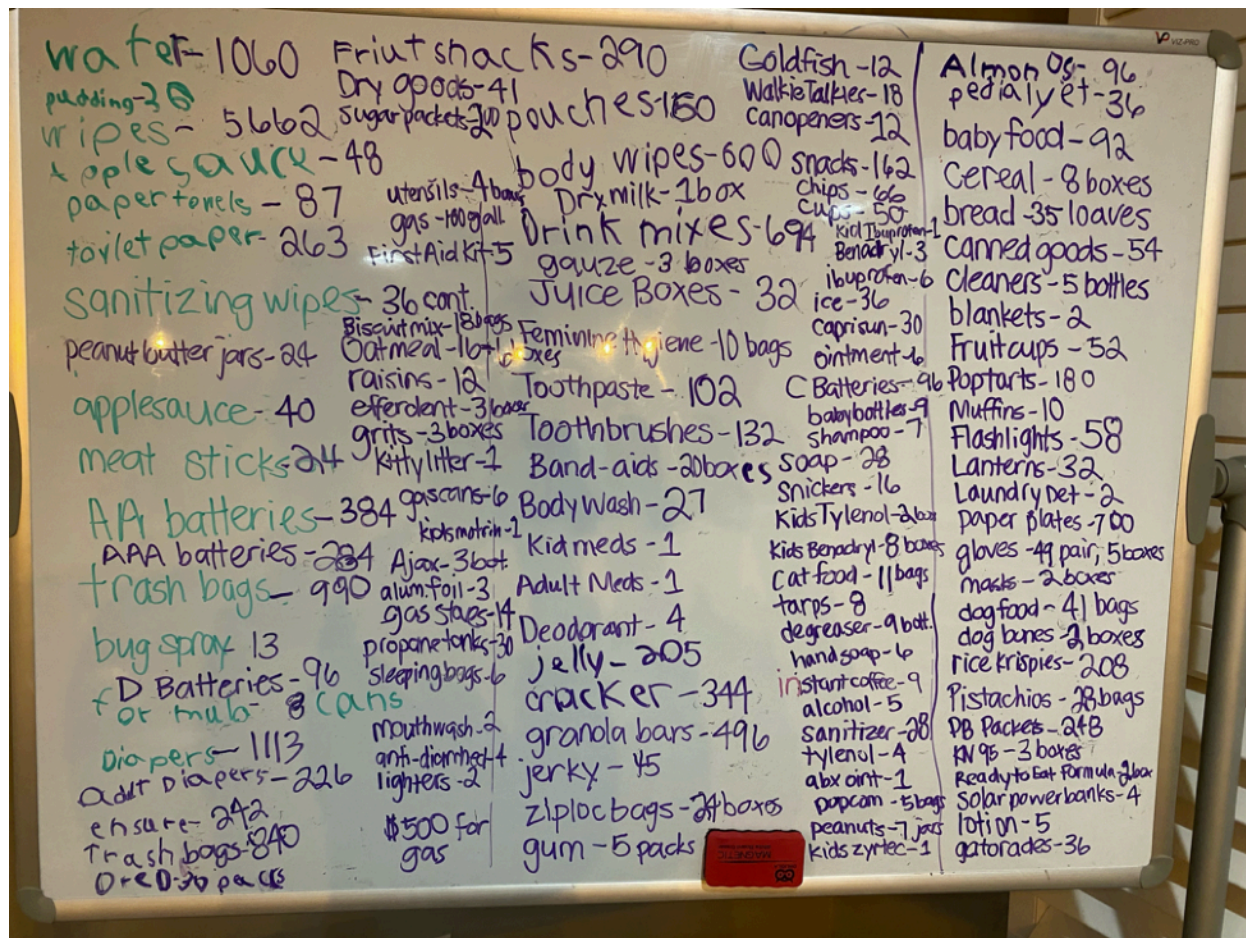 water-1060
pudding-36
wipes- 5662
applesauce-48
paper towels-87
toylet paper-263
sanitizing wipes-36 cont.
peanut butter jars-24
applesauce-40
meat sticks-24
AA batteries-384
AAA batteries-284
trash bags-990
bug spray 13
D Batteries-96
formula- 8 cans
Diapers-1113
Adult Diapers-226
ensure-242
Trash bags-840
Oreo-36 packs
Friut snacks-290
Dry goods-41
sugar packets-200
utensils-4 bags
gas-100 gall
First Aid Kit-5
Biscuit mix-18 bags
Oatmeal-16+
boxes
raisins-12
efferdent-3 boxes
grits-3 boxes
Kitty litter-1
gas cans-6
kids motrin-1
Ajax-3 bot
alum. foil-3
gas
propane tanks-30
sleeping bags-6
mouthwash-2
anti-diarrhea-4
lighters-2
$500 for
gas
pouches-150
body wipes-600
Dry milk-1 box
Drink mixes-694
gauze-3 boxes
Juice Boxes-32
Feminine Hygiene-10 bags
Toothpaste-102
Toothbrushes-132
Band-aids-20 boxes
Body Wash-27
Kid meds-1
Adult Meds-1
Deodorant-4
jelly-205
cracker-344
granola bars-496
jerky-45
ziploc bags-24 boxes
gum-5 packs
Goldfish-12
Walkie Talkies-18
Canopeners-12
snacks-162
chips-66
cups-50
Kid Ibuprofen-1
Benadryl-3
ibuprofen-6
ice-36
caprisun-30
ointment-6
C Batteries-96
baby bottles-9
shampoo-7
soap-28
Snickers-16
Kids Tylenol-2 box
Kids Benadryl-8 boxes
Cat food-11 bags
tarps-8
degreaser-9 bott.
hand soap-6
instant coffee-9
alcohol-5
sanitizer-28
tylenol-4
abx oint-1
popcorn-5 bags
peanuts-7 jars
Kids zyrtec-1
MAGNETIC
VIZ-PRO
Almonds-96
pedialyet-36
baby food-92
Cereal-8 boxes
bread-35 loaves
Canned goods-54
Cleaners-5 bottles
blankets-2
Fruit cups-52
Poptarts-180
Muffins-10
Flashlights-58
Lanterns-32
Laundry Det-2
paper plates-700
gloves-49 pair, 5 boxes
masks-2 boxes
dog food-41 bags
dog bones-2 boxes
rice krispies-208
Pistachios-28 bags
PB Packets-248
KN95-3 boxes
Ready to Eat Formula-2 box
Solar powerbanks-4
lotion-5
gatorades-36